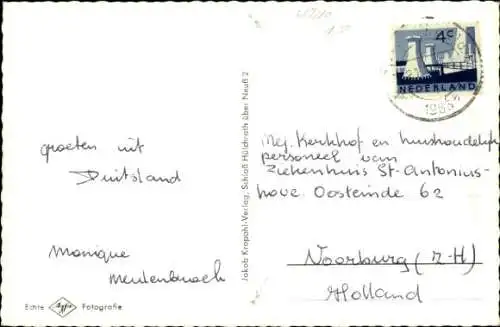 4c
NEDERLAND
1965
groeten uit
Duitsland
Monique
Meulenbroch
Echte Agfa Fotografie
Jakob Krapohl-Verlag, Schloß Hülchrath über Neuß 2
Mej. Kerkhof en huishoudelijk
personeel van
Ziekenhuis St-Antonius-
hove. Oosteinde 62
Noorburg (Z-H)
Holland